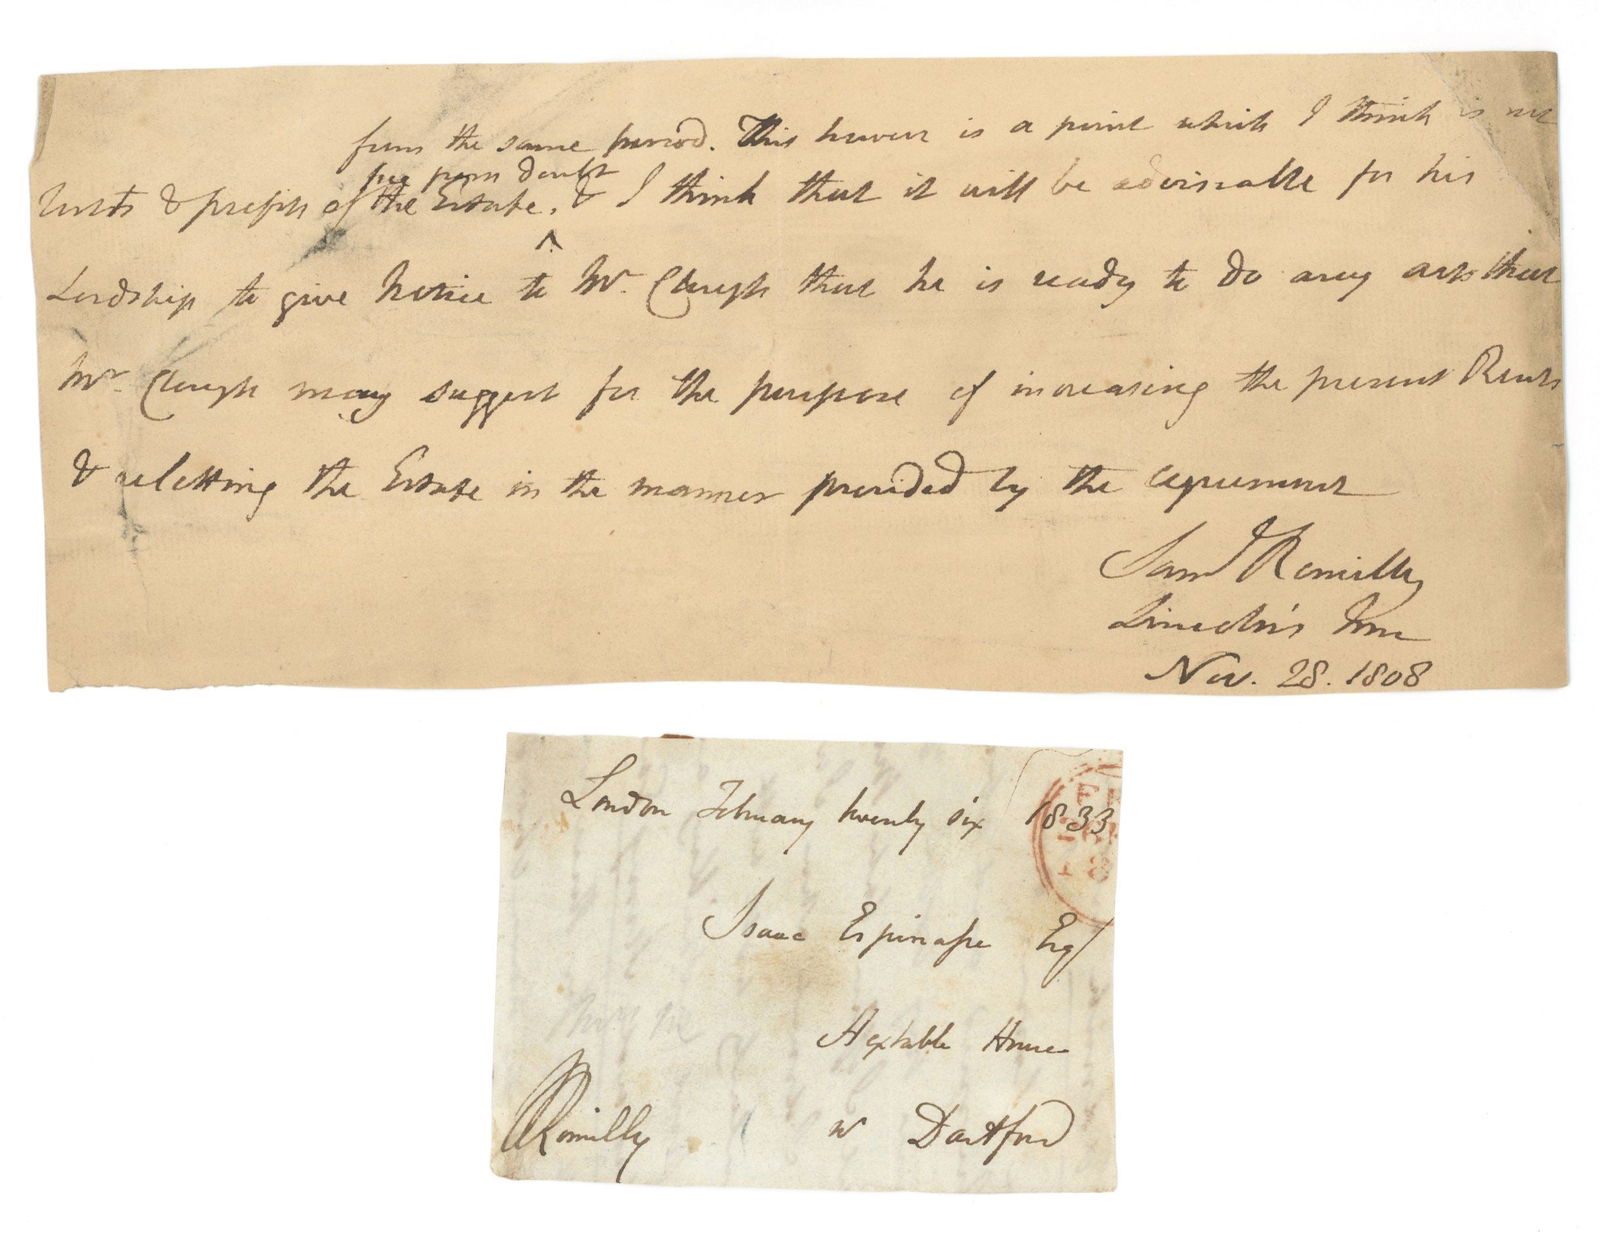 from the same period. This however is a point which I think is not
free from doubt
Rents & profits of the Estate. & I think that it will be adviseable for his
Lordship to give Notice to Mr. Clough that he is ready to do any acts that
Mr. Clough may suggest for the purpose of increasing the present Rents
& reletting the Estate in the manner provided by the agreement
Saml Romilly
Lincoln's Inn
Nov. 28. 1808
London February twenty six 1833
Isaac Espinasse Esq
Hextable House
nr Dartford
Romilly